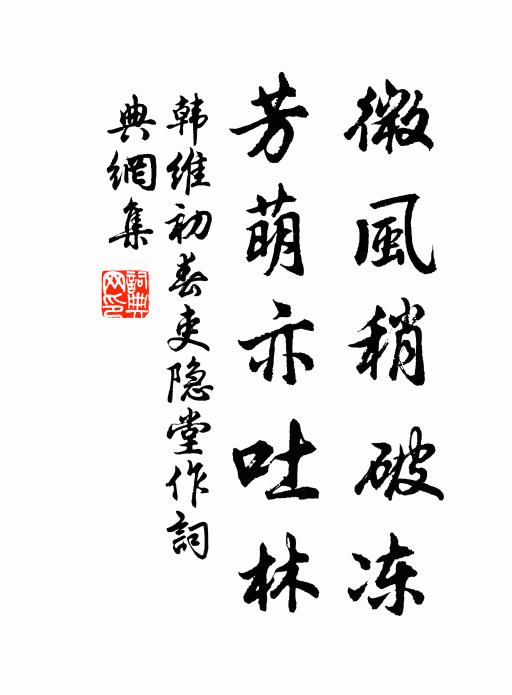 微風稍破冻
芳萌亦吐林
韩維初春吏隐堂作詞
典網集
詞典网印